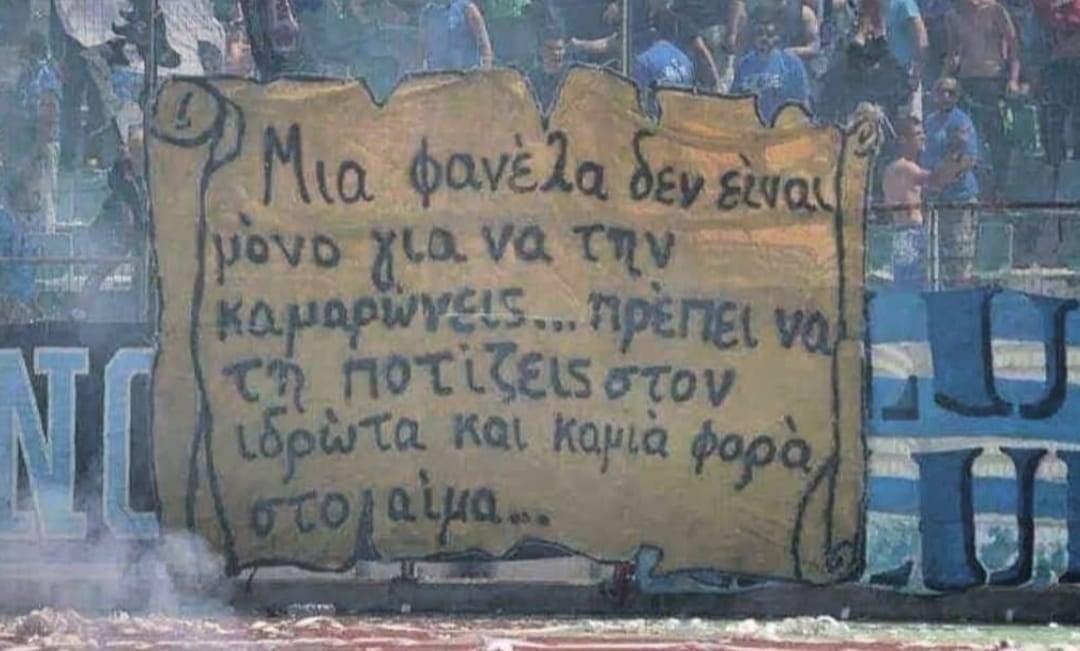 Μια φανέλα δεν είναι
μόνο για να την
καμαρώνεις... πρέπει να
τη ποτίζεις στον
ιδρώτα και καμιά φορά
στο αίμα...